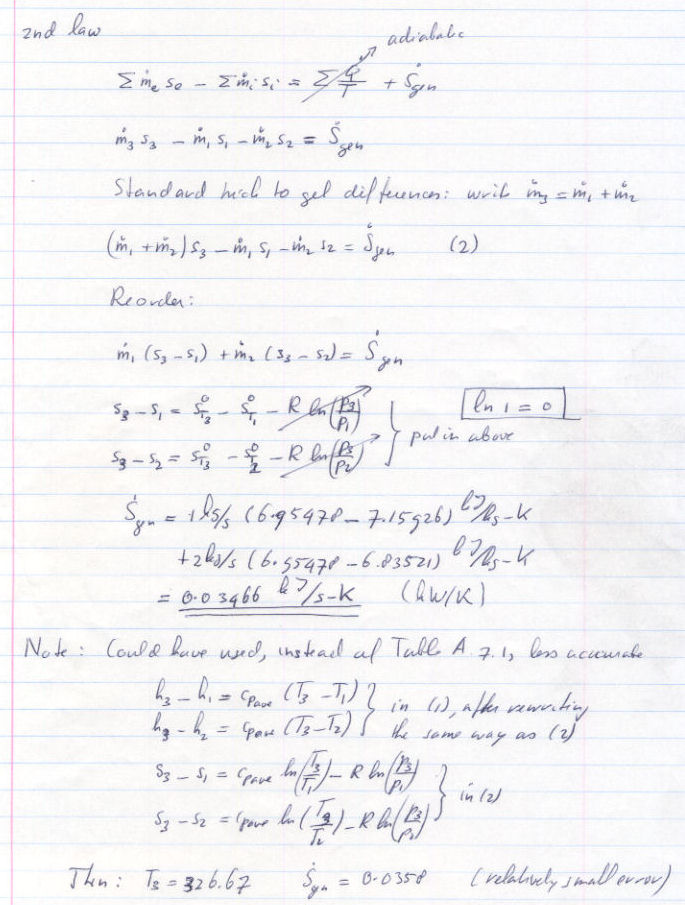 2nd law
adiabatic
Σ ṁe se − Σ ṁi si = Σ Q̇/T + Ṡgen
ṁ3 s3 − ṁ1 s1 − ṁ2 s2 = Ṡgen
Standard trick to get differences: write ṁ3 = ṁ1 + ṁ2
(ṁ1 + ṁ2) s3 − ṁ1 s1 − ṁ2 s2 = Ṡgen (2)
Reorder:
ṁ1 (s3 − s1) + ṁ2 (s3 − s2) = Ṡgen
s3 − s1 = s°T3 − s°T1 − R ln(P3/P1) ln 1 = 0
s3 − s2 = s°T3 − s°T2 − R ln(P3/P2) } put in above
Ṡgen = 1 kg/s (6.95478 − 7.15926) kJ/kg-K
+2 kg/s (6.95478 − 6.83521) kJ/kg-K
= 0.03466 kJ/s-K (kW/K)
Note: Could have used, instead of Table A.7.1, less accurate
h3 − h1 = cpave (T3 − T1) } in (1), after rewriting
h3 − h2 = cpave (T3 − T2) } the same way as (2)
s3 − s1 = cpave ln(T3/T1) − R ln(P3/P1)
s3 − s2 = cpave ln(T3/T2) − R ln(P3/P2) } in (2)
Then: T3 = 326.67 Ṡgen = 0.0358 (relatively small error)